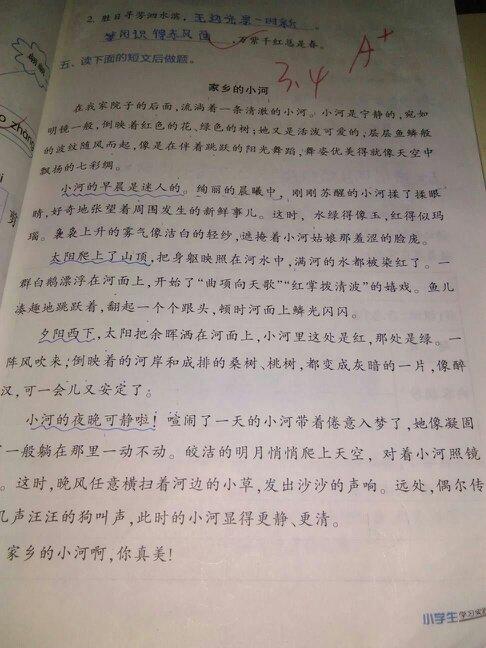 2. 胜日寻芳泗水滨,无边光景一时新。
等闲识得东风面,万紫千红总是春。
五、读下面的短文后做题。
3.4 A+
家乡的小河
在我家院子的后面,流淌着一条清澈的小河。小河是宁静的,宛如
明镜一般,倒映着红色的花、绿色的树;她又是活泼可爱的;层层鱼鳞般
的波纹随风而起,像是在伴着跳跃的阳光舞蹈,舞姿优美得就像天空中
飘扬的七彩绸。
小河的早晨是迷人的。绚丽的晨曦中,刚刚苏醒的小河揉了揉眼
睛,好奇地张望着周围发生的新鲜事儿。这时,水绿得像玉,红得似玛
瑙。袅袅上升的雾气像洁白的轻纱,遮掩着小河姑娘那羞涩的脸庞。
太阳爬上了山顶,把身躯映照在河水中,满河的水都被染红了。一
群白鹅漂浮在河面上,开始了“曲项向天歌”“红掌拨清波”的嬉戏。鱼儿
凑趣地跳跃着,翻起一个个跟头,顿时河面上鳞光闪闪。
夕阳西下,太阳把余晖洒在河面上,小河里这处是红,那处是绿。一
阵风吹来;倒映着的河岸和成排的桑树、桃树,都变成灰暗的一片,像醉
汉,可一会儿又安定了。
小河的夜晚可静啦!喧闹了一天的小河带着倦意入梦了,她像凝固
一般躺在那里一动不动。皎洁的明月悄悄爬上天空,对着小河照镜
。这时,晚风任意横扫着河边的小草,发出沙沙的声响。远处,偶尔传
几声汪汪的狗叫声,此时的小河显得更静、更清。
家乡的小河啊,你真美!
小学生学习实